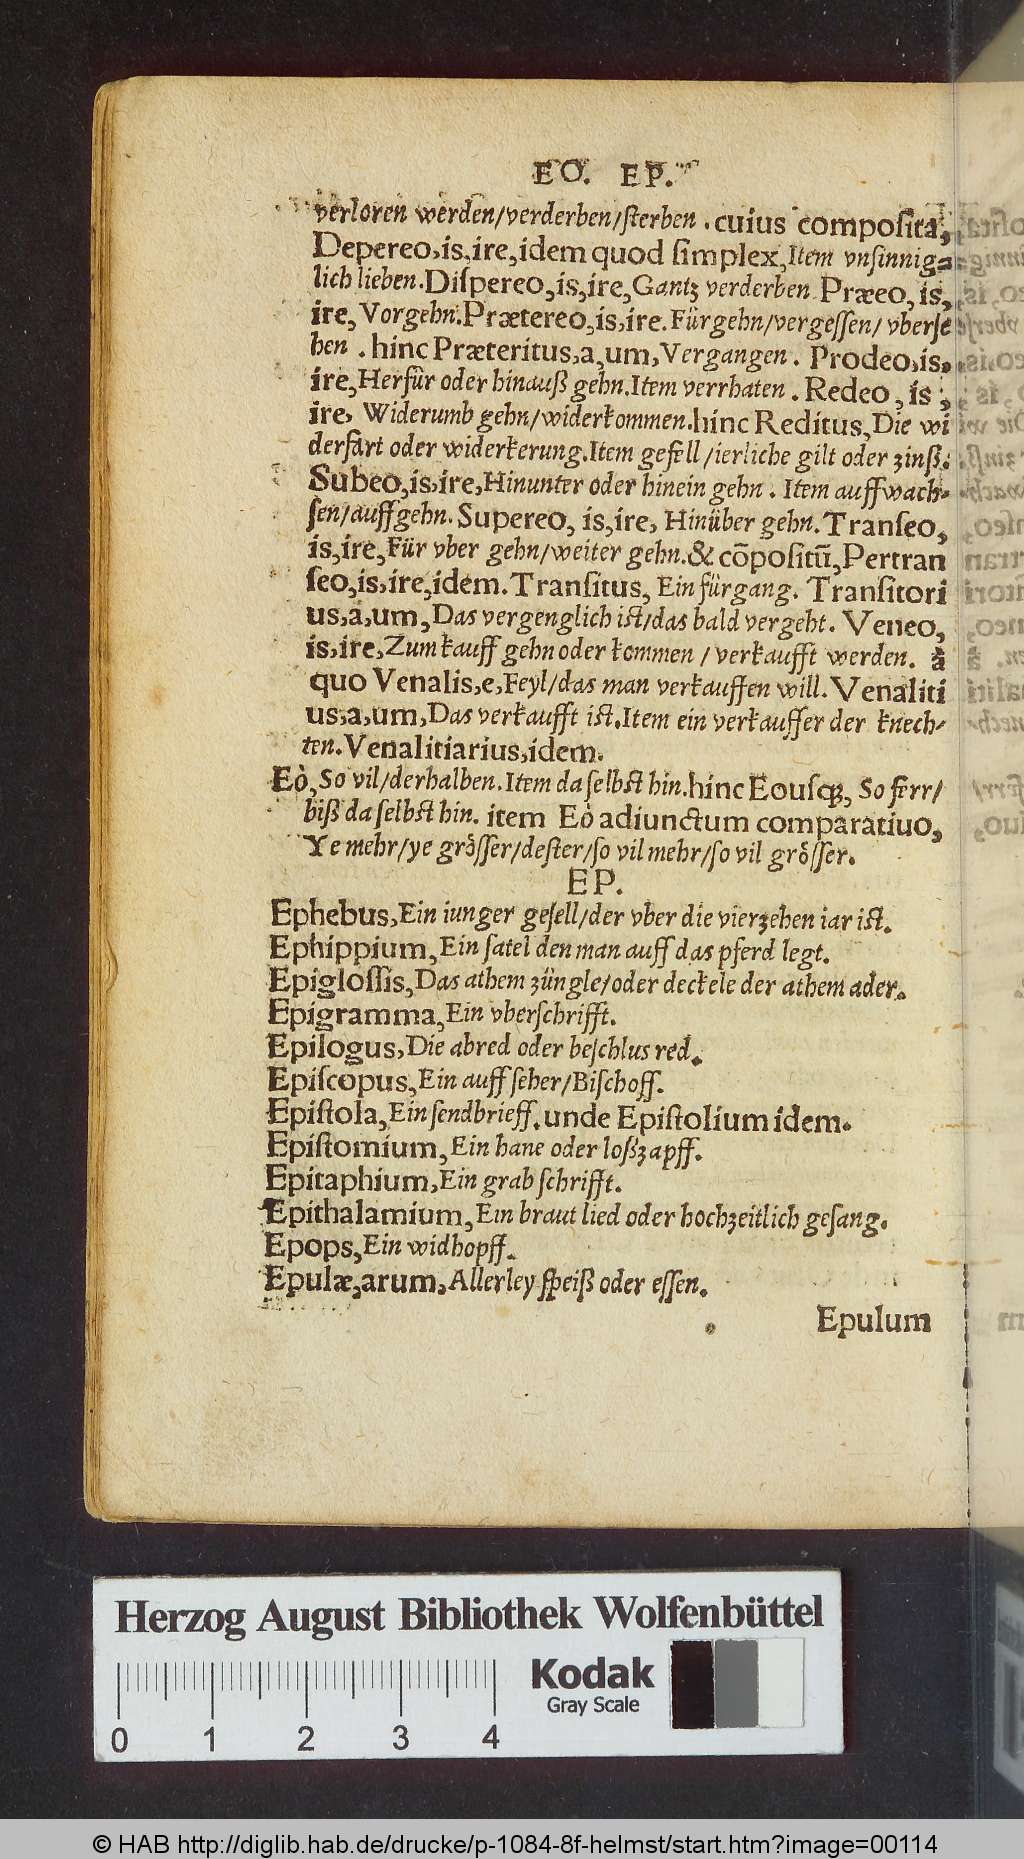 EO. EP.
verloren werden/verderben/sterben. cuius composita,
Depereo,is,ire,idem quod ſimplex,Item vnſinnig-
lich lieben.Diſpereo,is,ire,Gantz verderben Præeo,is,
ire,Vorgehn.Prætereo,is,ire.Fürgehn/vergeſſen/vberſe
hen. hinc Præteritus,a,um,Vergangen. Prodeo,is,
ire,Herfür oder hinauß gehn.Item verrhaten. Redeo, is,
ire, Widerumb gehn/widerkommen.hinc Reditus,Die wi
derfart oder widerkerung.Item gefell/ierliche gilt oder zinß.
Subeo,is,ire,Hinunter oder hinein gehn. Item auffwach-
ſen/auffgehn.Supereo, is,ire, Hinüber gehn.Tranſeo,
is,ire,Für vber gehn/weiter gehn.& cōpoſitū,Pertran
ſeo,is,ire,idem.Tranſitus, Ein fürgang. Tranſitori
us,a,um,Das vergenglich iſt/das bald vergeht. Veneo,
is,ire,Zum kauff gehn oder kommen/verkaufft werden. à
quo Venalis,e,Feyl/das man verkauffen will.Venaliti
us,a,um,Das verkaufft iſt.Item ein verkauffer der knech-
ten.Venalitiarius,idem.
Eò,So vil/derhalben.Item daſelbſt hin.hinc Eouſqꝫ, So ferr/
biß daſelbſt hin. item Eò adiunctum comparatiuo,
Ye mehr/ye gröſſer/deſter/ſo vil mehr/ſo vil gröſſer.
EP.
Ephebus,Ein iunger geſell/der vber die vierzehen iar iſt.
Ephippium,Ein ſatel den man auff das pferd legt.
Epigloſſis,Das athem züngle/oder deckele der athem ader.
Epigramma,Ein vberſchrifft.
Epilogus,Die abred oder beſchlus red.
Epiſcopus,Ein auffſeher/Biſchoff.
Epiſtola,Ein ſendbrieff.unde Epiſtolium idem.
Epiſtomium,Ein hane oder loßzapff.
Epitaphium,Ein grabſchrifft.
Epithalamium,Ein braut lied oder hochzeitlich geſang.
Epops,Ein widhopff.
Epulæ,arum,Allerley ſpeiß oder eſſen.
Epulum
Herzog August Bibliothek Wolfenbüttel
Kodak
Gray Scale
0 1 2 3 4
© HAB http://diglib.hab.de/drucke/p-1084-8f-helmst/start.htm?image=00114